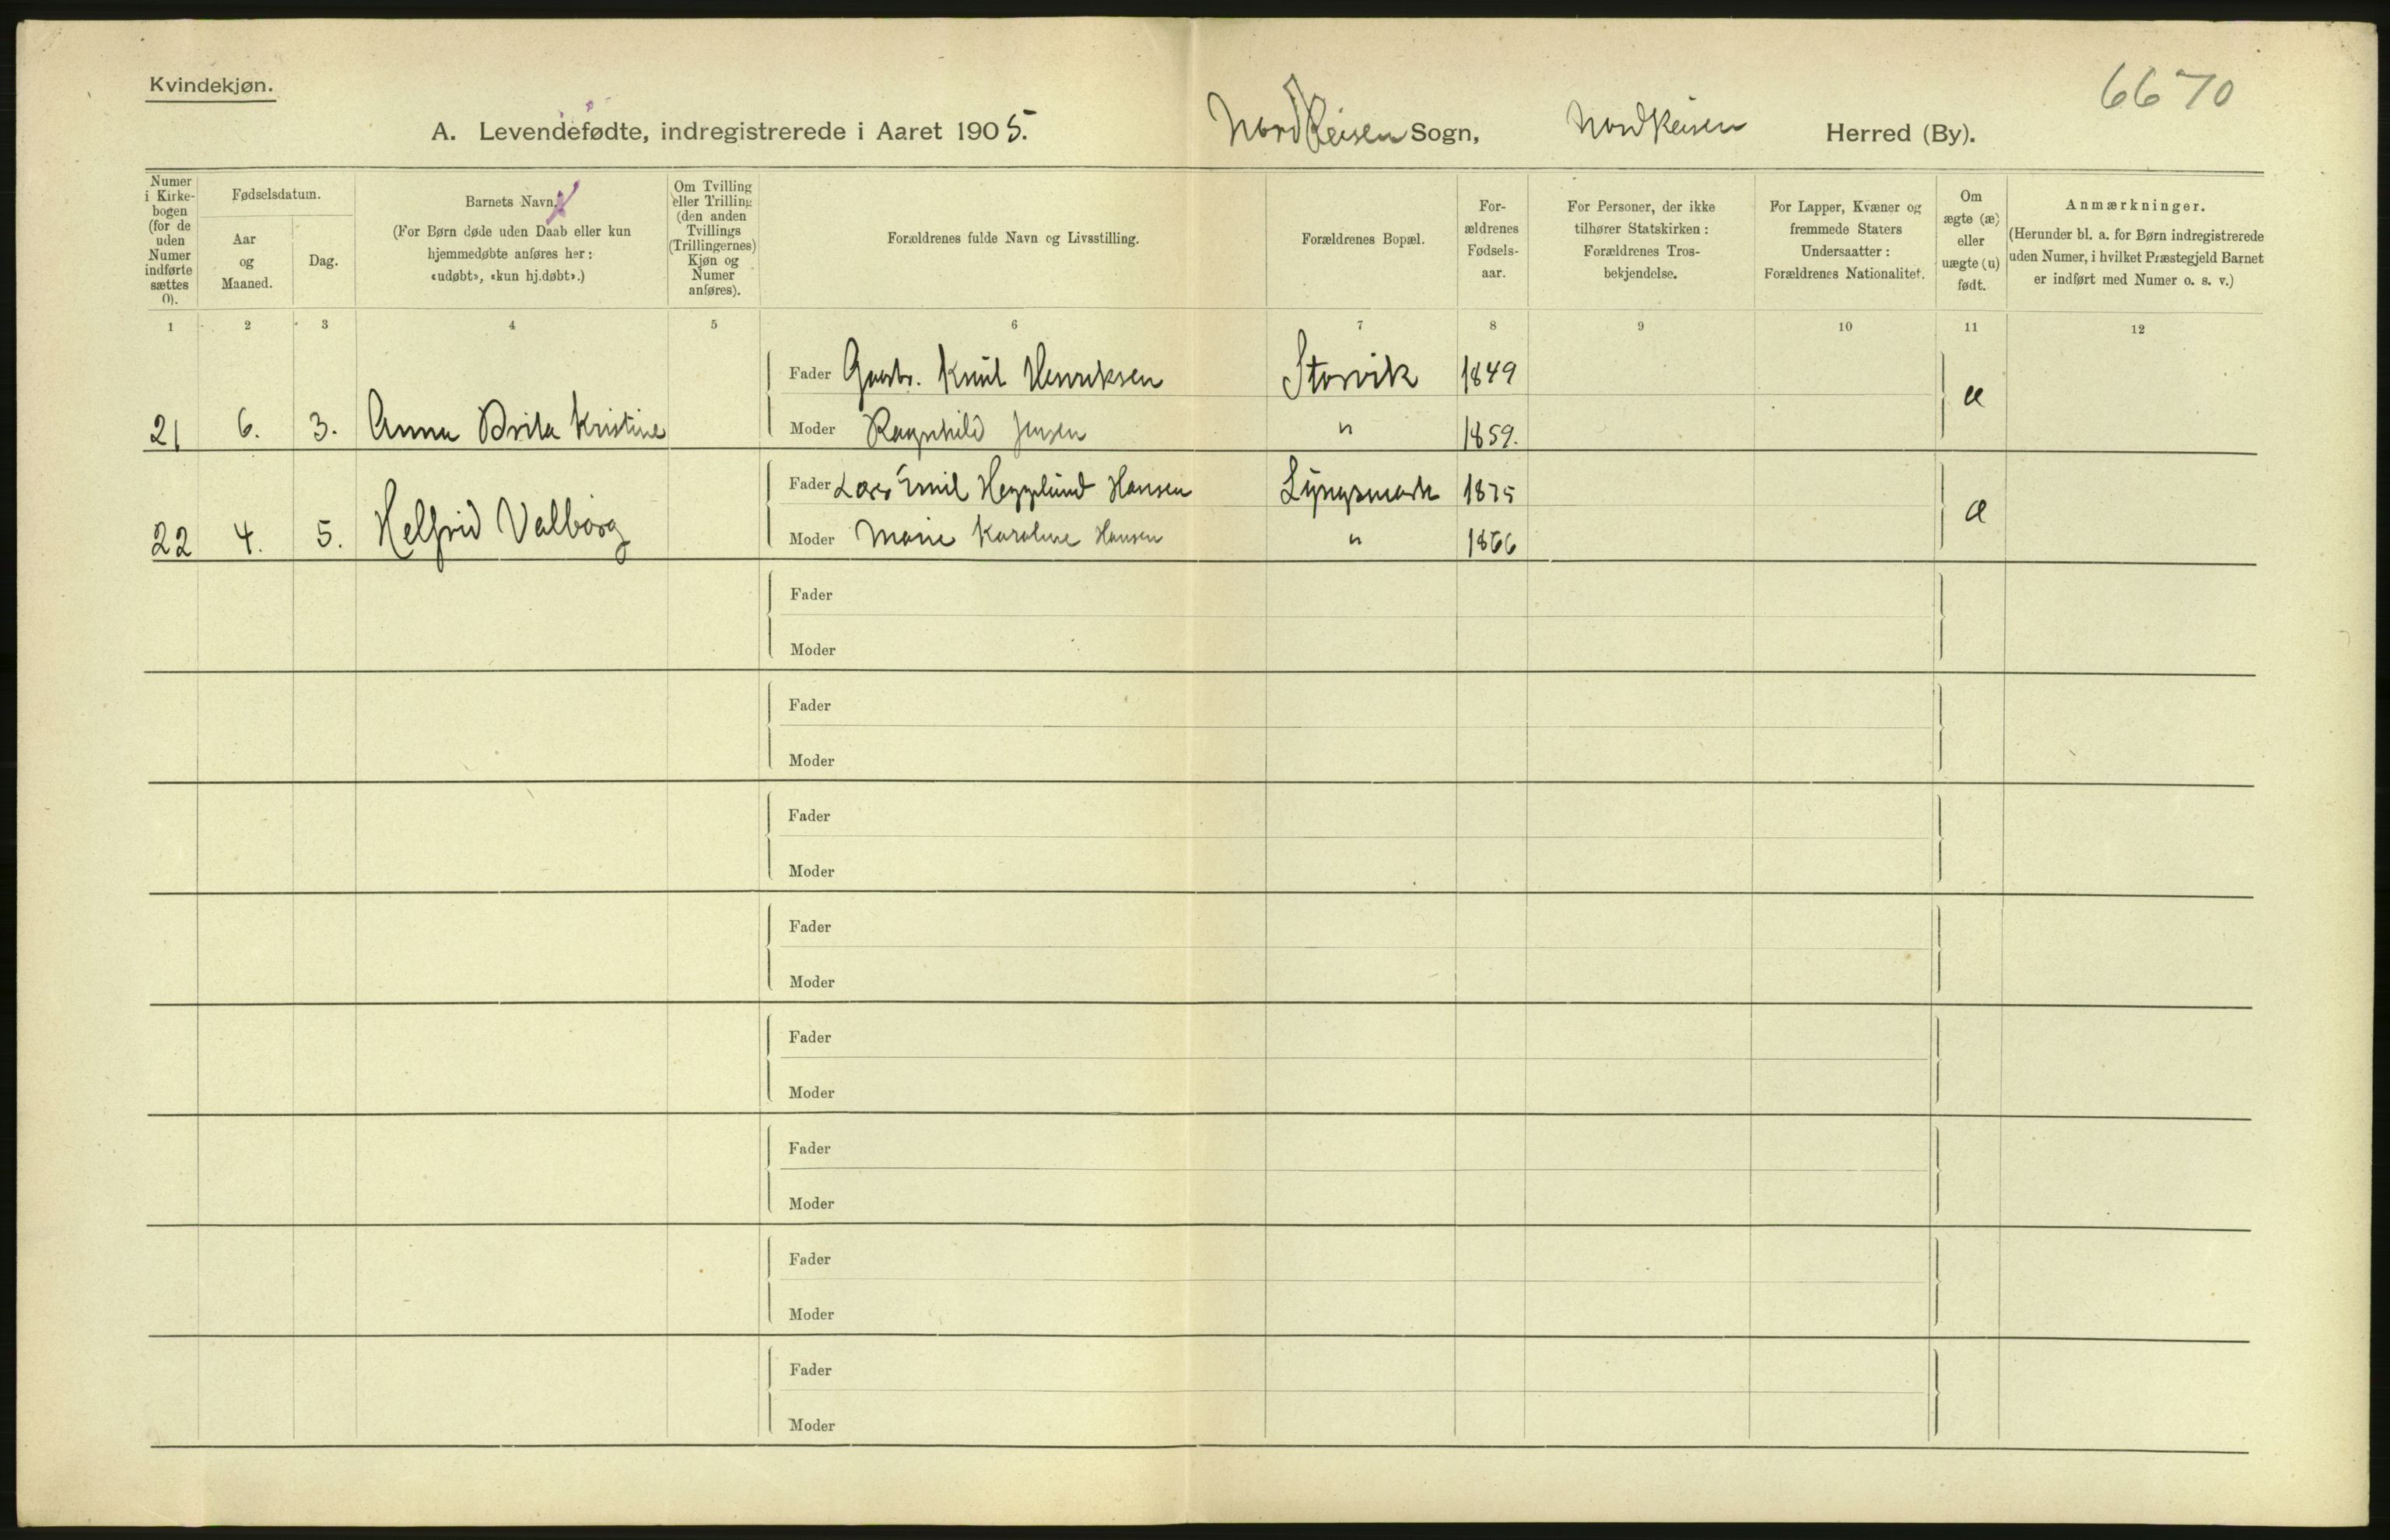 Kvindekjøn.
6670
A. Levendefødte, indregistrerede i Aaret 1905. Nordreisen Sogn, Nordreisen Herred (By).
Numer i Kirkebogen (for de uden Numer indførte sættes 0).
Fødselsdatum.
Aar og Maaned.
Dag.
Barnets Navn.
(For Børn døde uden Daab eller kun
hjemmedøbte anføres her:
«udøbt», «kun hj.døbt».)
Om Tvilling
eller Trilling
(den anden
Tvillings
(Trillingernes)
Kjøn og
Numer
anføres).
Forældrenes fulde Navn og Livsstilling.
Forældrenes Bopæl.
For-
ældrenes
Fødsels-
aar.
For Personer, der ikke
tilhører Statskirken:
Forældrenes Tros-
bekjendelse.
For Lapper, Kvæner og
fremmede Staters
Undersaatter:
Forældrenes Nationalitet.
Om
ægte (æ)
eller
uægte (u)
født.
Anmærkninger.
(Herunder bl. a. for Børn indregistrerede
uden Numer, i hvilket Præstegjeld Barnet
er indført med Numer o. s. v.)
1 2 3 4 5 6 7 8 9 10 11 12
Fader Gaarbr. Knut Henriksen Storvik 1849 æ
21 6. 3. Anna Brita Kristine Moder Ragnhild Jensen " 1859.
Fader Lars Emil Hegglund Hansen Lyngsmark 1875 æ
22 4. 5. Helfrid Valborg Moder Marie Karoline Hansen " 1866
Fader
Moder
Fader
Moder
Fader
Moder
Fader
Moder
Fader
Moder
Fader
Moder
Fader
Moder
Fader
Moder